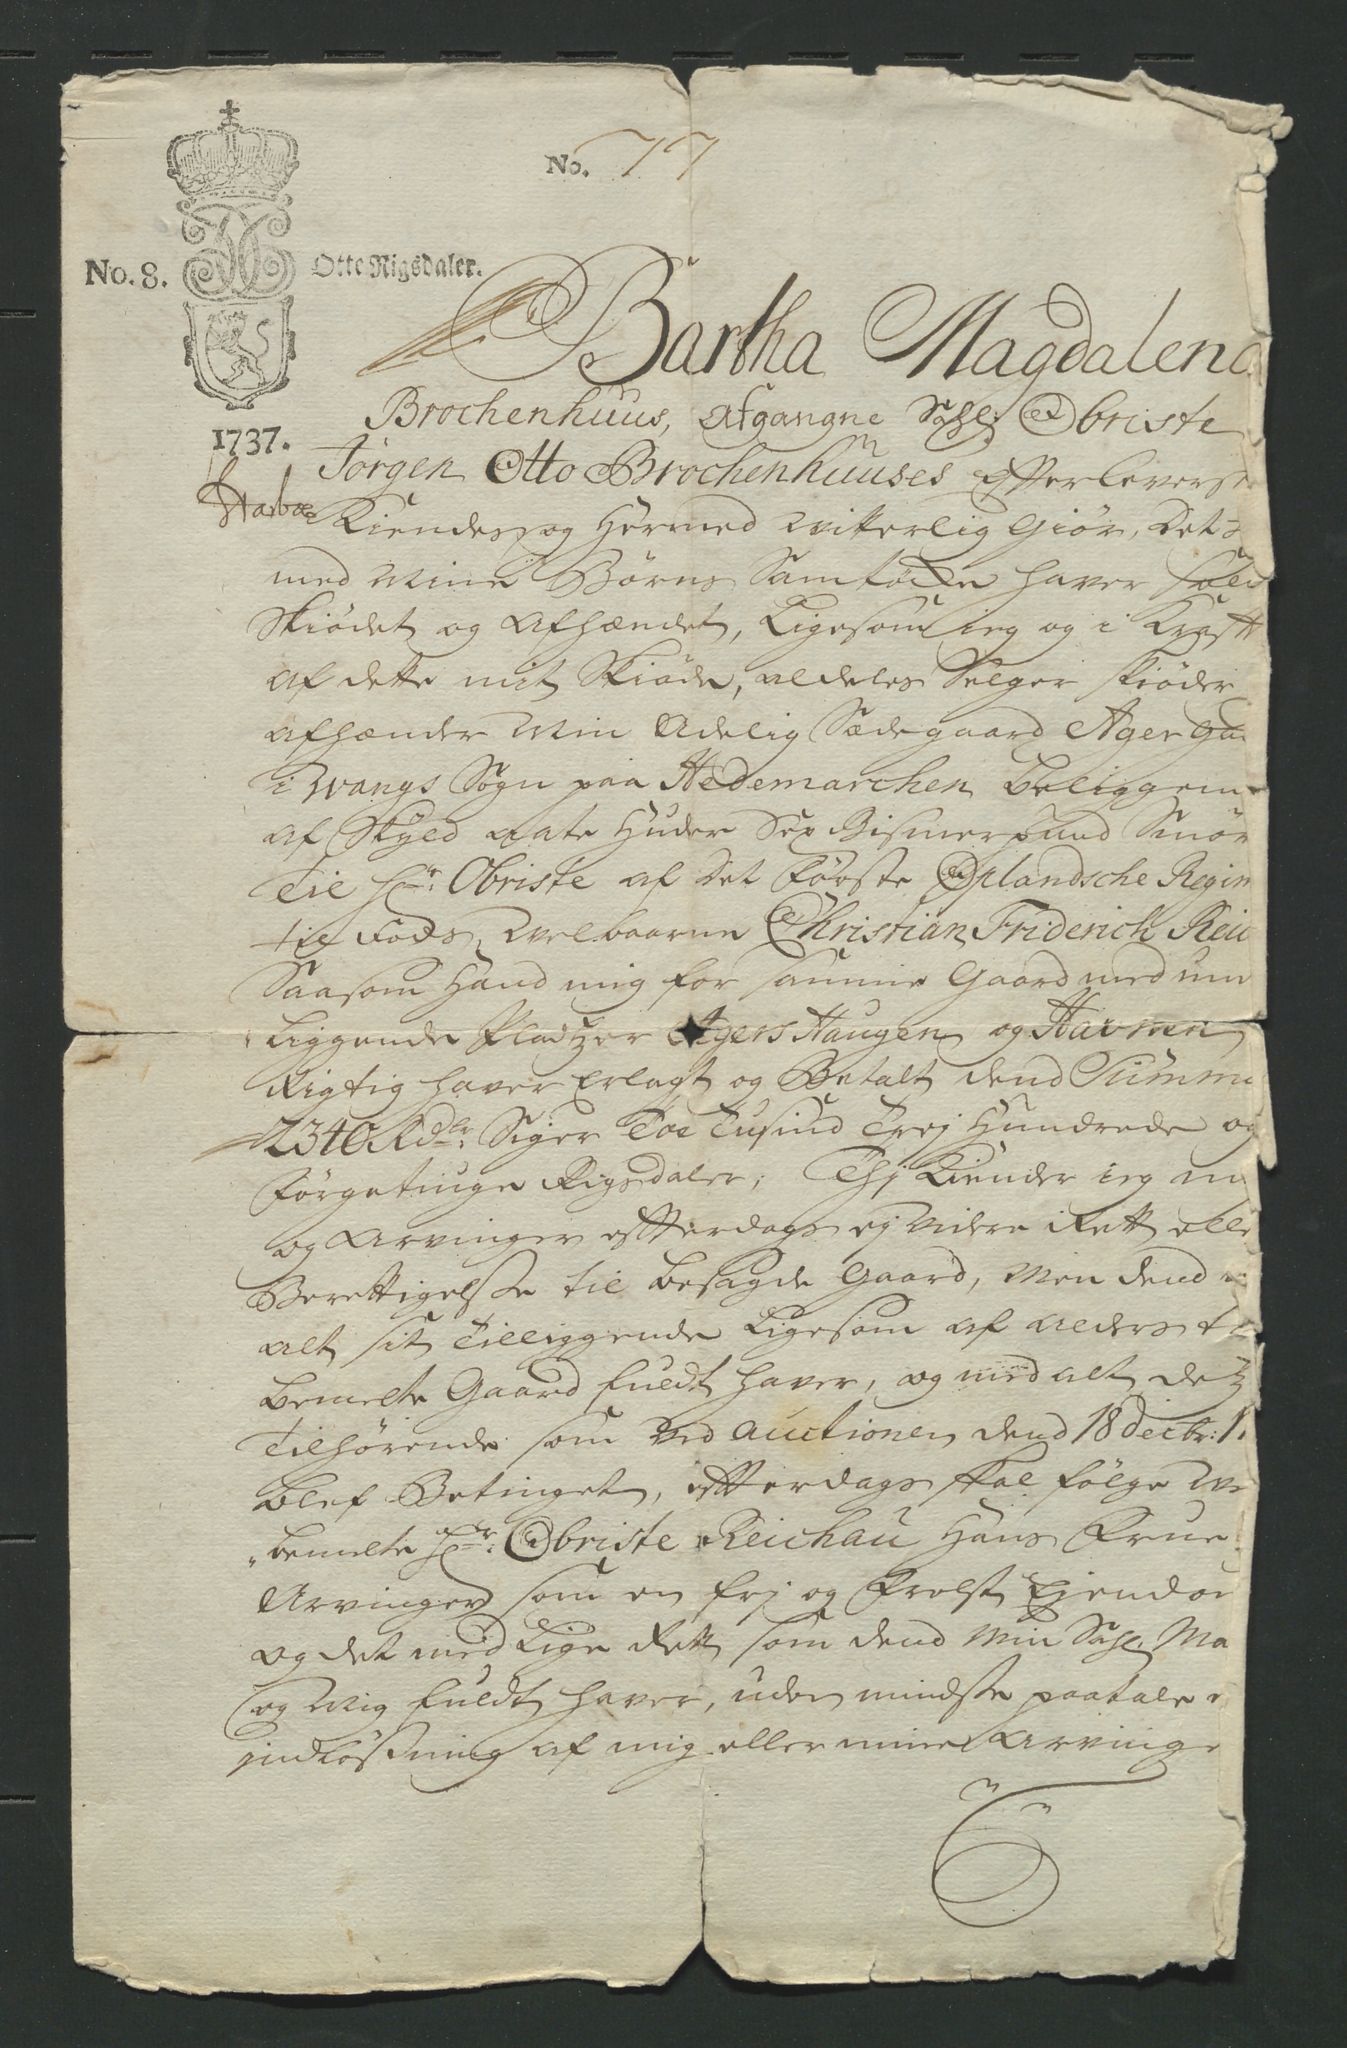 No. 77
No. 8. Otte Rigsdaler.
Bartha Magdalena
Brochenhuus, afgangne Sahl: Obriste
1737.
Jörgen Otto Brochenhuuses Efterleverske
Kiendes og Hermed vitterlig Giör, Det
med Mine Börns Samtöcke haver
Skiödet og afhændet, Ligesom ieg og i Krafft
af dette mit Skiöde, aldeles Selger skiöder
afhænder Min Adelig Sædegaard Ager
i Wangs Sogn paa Hedemarchen beliggen
af Skyld aate Huder Sex Bismerpund Smör
Til Hr: Obriste af det Förste Oplandsche Regim
til Fods, Velbaarne Christian Friderich Reic
Saasom Hand mig for samme Gaard med um
Liggende Pladtzer Agers Haugen og Havnen
Rigtig haver Erlagt og Betalt dend Summa
2340 Rdlr: Siger Toe Tusind Trej Hundrede og
Förgetiuge Rigsdaler; Thj Kiender ieg m
og Arvinger efterdags ej videre Rett elle
Berettigelse til besagde Gaard, Men dend
alt sit Tilliggende Ligesom af alders
bemelte Gaard fuldt haver, og med alt detz
Tilhörende som ved Auctionen dend 18 decbr: 1
blef Betinget, efterdags skal fölge
bemelte Hr: Obriste Reichau Hans Frue
Arvinger som en frj og Frelst Ejendom
og det med Lige Rett som dend Min Sahl. Ma
og Mig fuldt haver, uden mindste paatale
indlösning af mig eller mine Arvinge